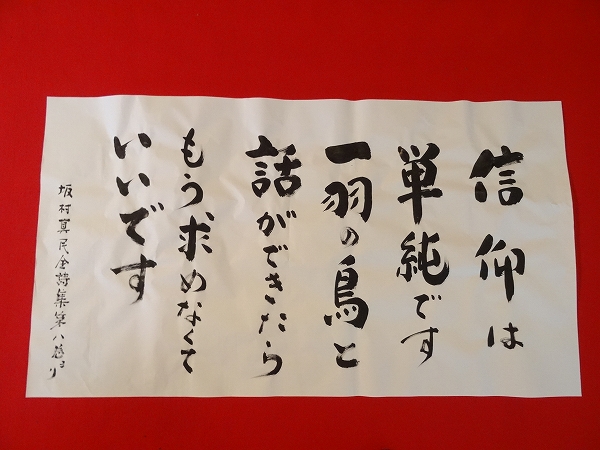 信仰は
単純です
一羽の鳥と
話ができたら
もう求めなくて
いいです
坂村真民全詩集第八巻より